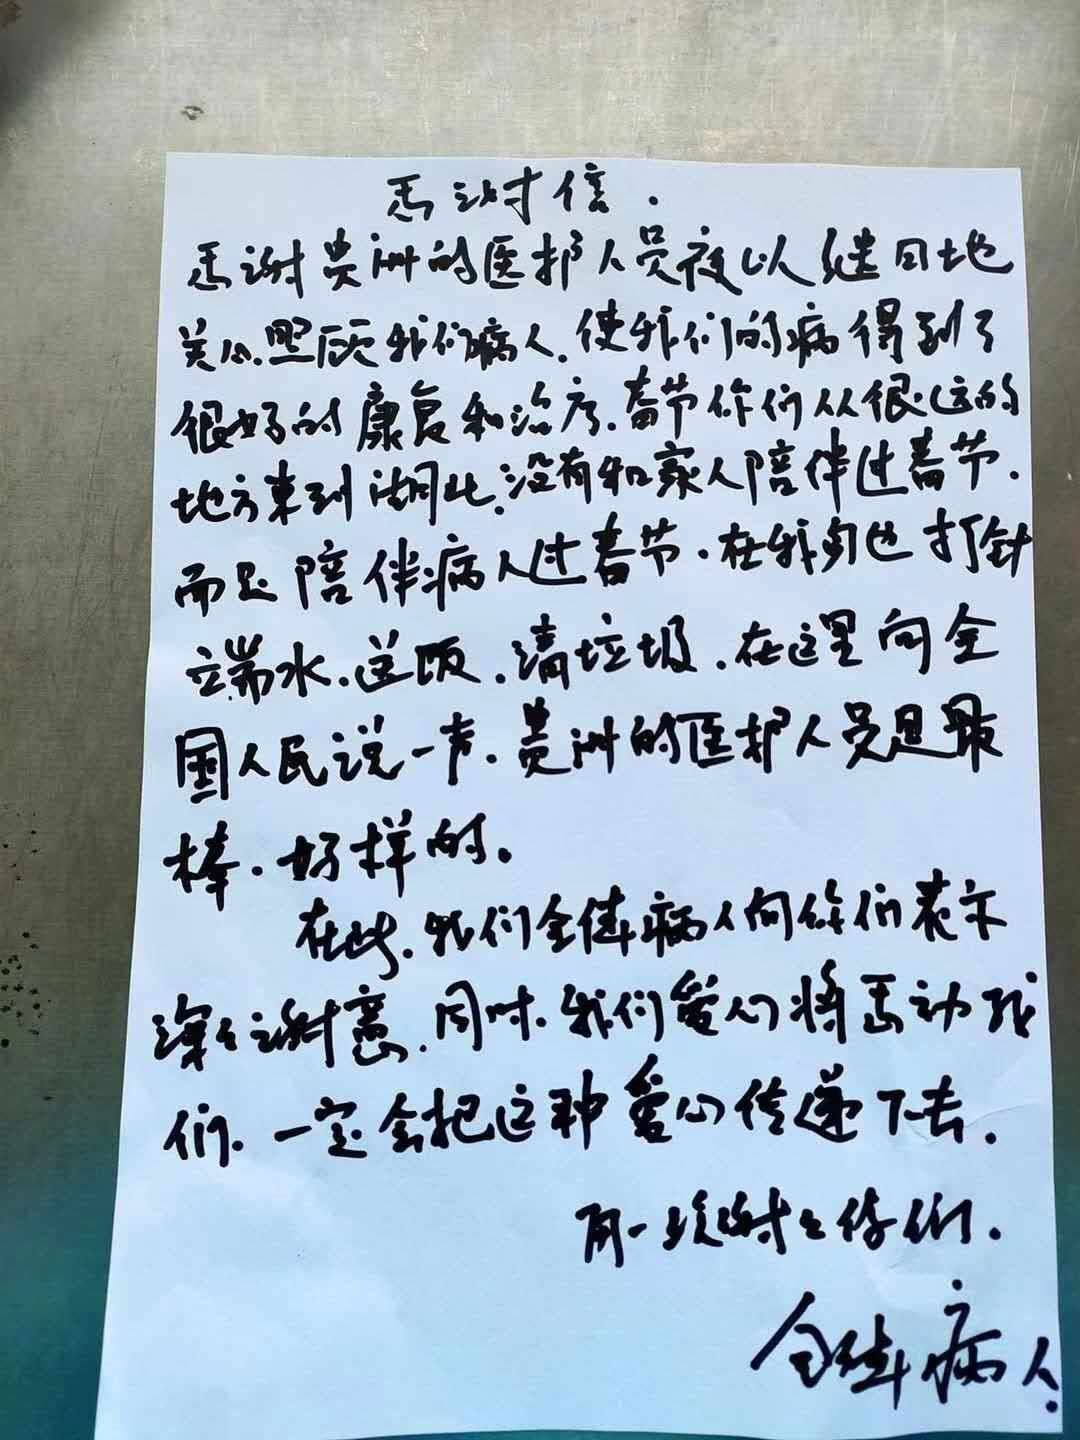 感谢信.
感谢贵洲的医护人员夜以继日地
关心.照顾我们病人.使我们的病得到了
很好的康复和治疗.春节你们从很远的
地方来到湖北.没有和家人陪伴过春节.
而是陪伴病人过春节.在我们也打针
端水.送饭.清垃圾.在这里向全
国人民说一声.贵洲的医护人员是最
棒.好样的.
在此.我们全体病人向你们表示
深深谢意.同时.我们爱心将感动我
们.一定会把这种爱心传递下去.
再一次谢谢你们.
全体病人.